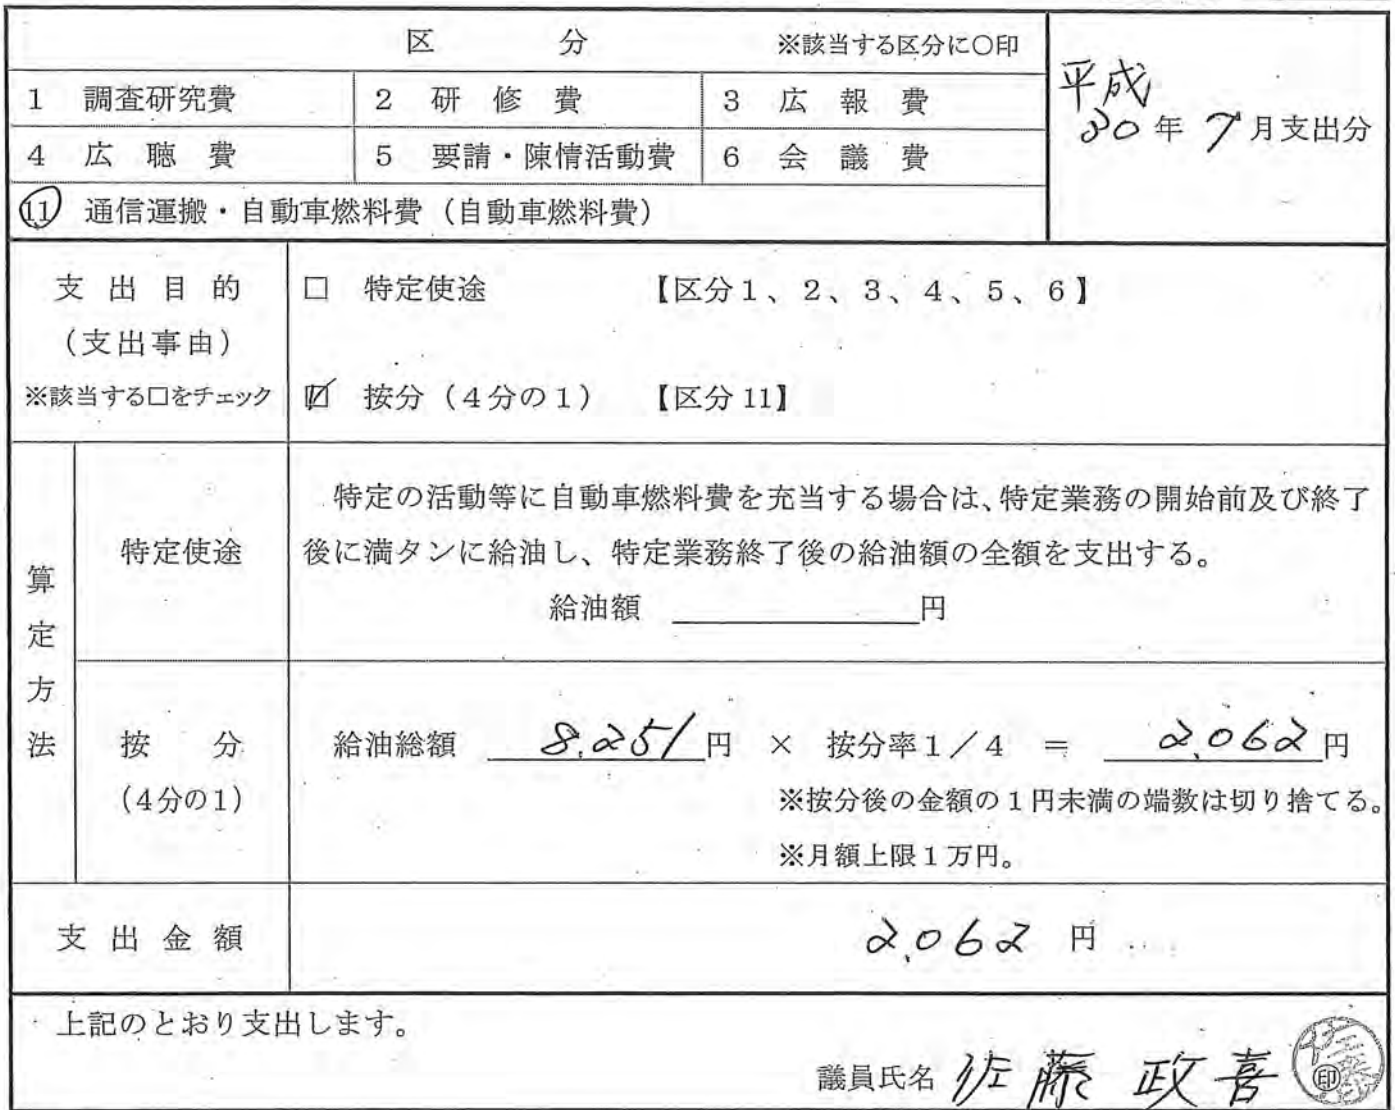 区 分 ※該当する区分に○印
平成
30年 7月支出分
1 調査研究費 2 研修費 3 広報費
4 広聴費 5 要請・陳情活動費 6 会議費
11 通信運搬・自動車燃料費（自動車燃料費）
支出目的
（支出事由）
※該当する□をチェック
□ 特定使途 【区分1、2、3、4、5、6】
☑ 按分（4分の1） 【区分11】
算定方法
特定使途
特定の活動等に自動車燃料費を充当する場合は、特定業務の開始前及び終了
後に満タンに給油し、特定業務終了後の給油額の全額を支出する。
給油額 円
按分
（4分の1）
給油総額 8,251円 × 按分率1／4 ＝ 2,062円
※按分後の金額の1円未満の端数は切り捨てる。
※月額上限1万円。
支出金額 2,062 円
上記のとおり支出します。
議員氏名 佐藤 政喜 ㊞
佐藤